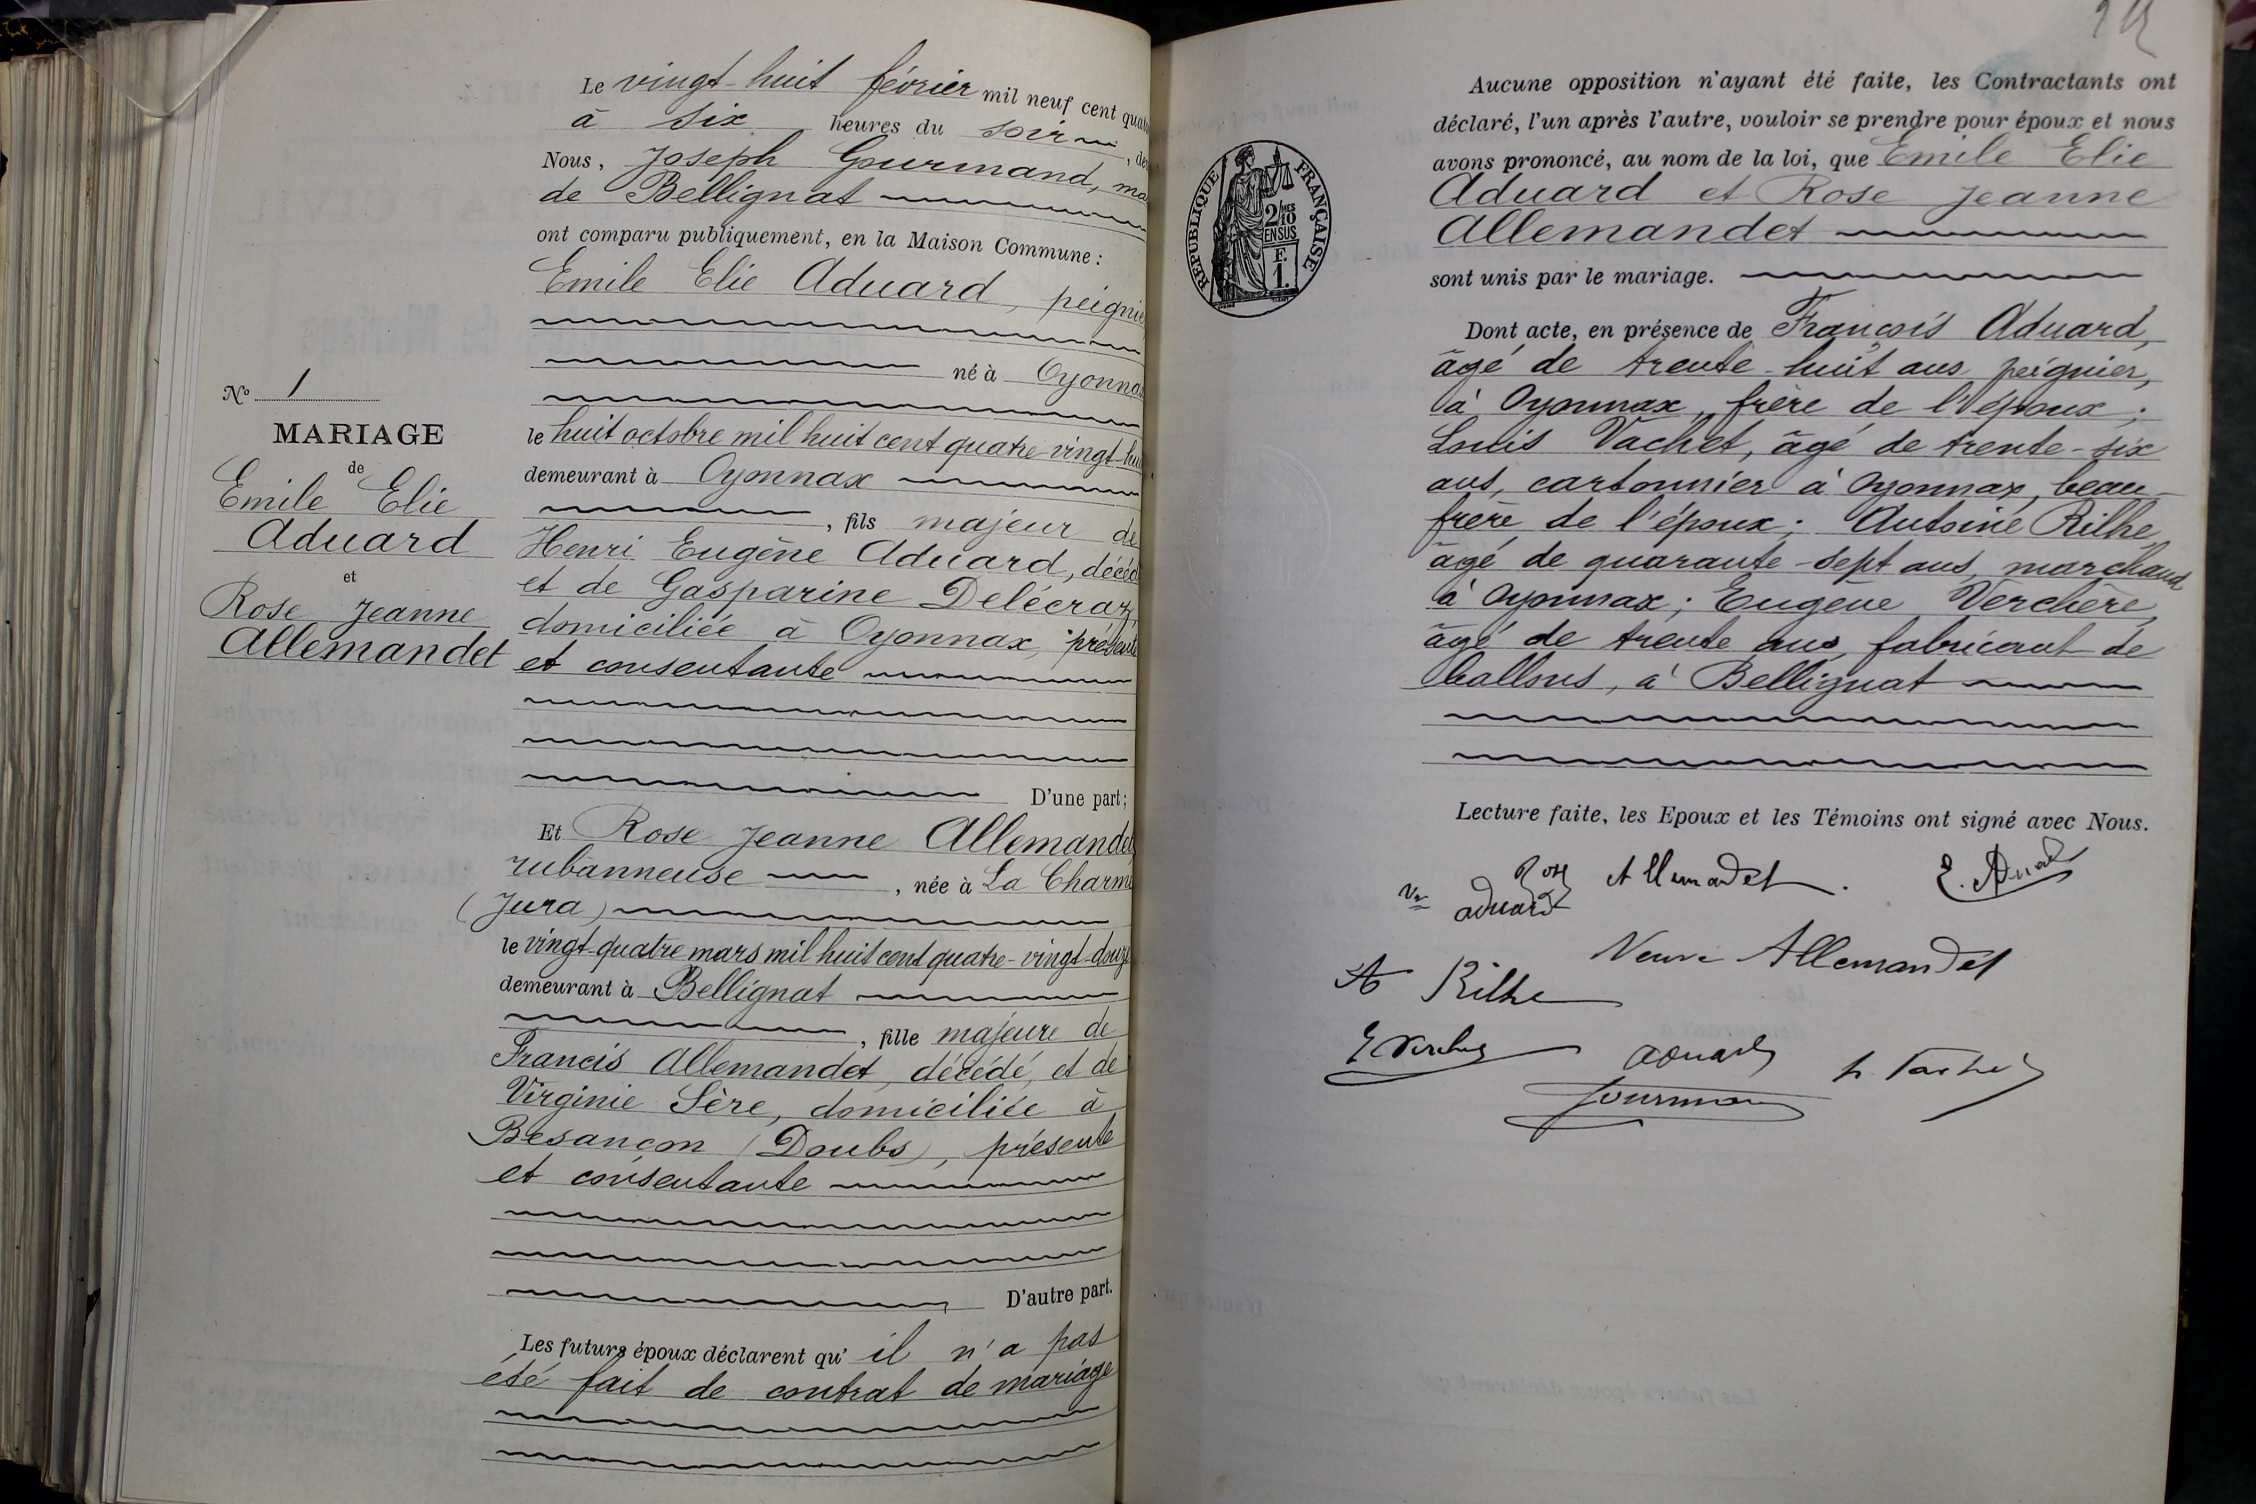 Le vingt-huit février mil neuf cent quato
à six heures du soir, de
Nous, Joseph Gourmand, ma
de Bellignat
ont comparu publiquement, en la Maison Commune :
Emile Elie Aduard, peignie
né à Oyonna
le huit octobre mil huit cent quatre-vingt-hu
demeurant à Oyonnax
, fils majeur de
Henri Eugène Aduard, décéd
et de Gasparine Delécraz,
domiciliée à Oyonnax, présente
et consentante
D'une part ;
Et Rose Jeanne Allemandet
rubanneuse, née à La Charme
(Jura)
le vingt-quatre mars mil huit cent quatre-vingt-douze
demeurant à Bellignat
, fille majeure de
Francis Allemandet, décédé, et de
Virginie Sère, domiciliée à
Besançon (Doubs), présente
et consentante
D'autre part.
Les futurs époux déclarent qu' il n'a pas
été fait de contrat de mariage
No 1
MARIAGE
de
Emile Elie
Aduard
et
Rose Jeanne
Allemandet
RÉPUBLIQUE FRANÇAISE
2/10MES
EN SUS
F.
1.
Aucune opposition n'ayant été faite, les Contractants ont
déclaré, l'un après l'autre, vouloir se prendre pour époux et nous
avons prononcé, au nom de la loi, que Emile Elie
Aduard et Rose Jeanne
Allemandet
sont unis par le mariage.
Dont acte, en présence de François Aduard,
âgé de trente-huit ans, peignier,
à Oyonnax, frère de l'époux ;
Louis Vachet, âgé de trente-six
ans, cartonnier à Oyonnax, beau-
frère de l'époux ; Antoine Rilhe,
âgé de quarante-sept ans, marchand
à Oyonnax ; Eugène Verchère,
âgé de trente ans, fabricant de
ballons, à Bellignat
Lecture faite, les Epoux et les Témoins ont signé avec Nous.
Rose Allemandet. E. Aduard
Ve aduard
Veuve Allemandet
A Rilhe
E Verchère aduard L. Vachet
Gourmand